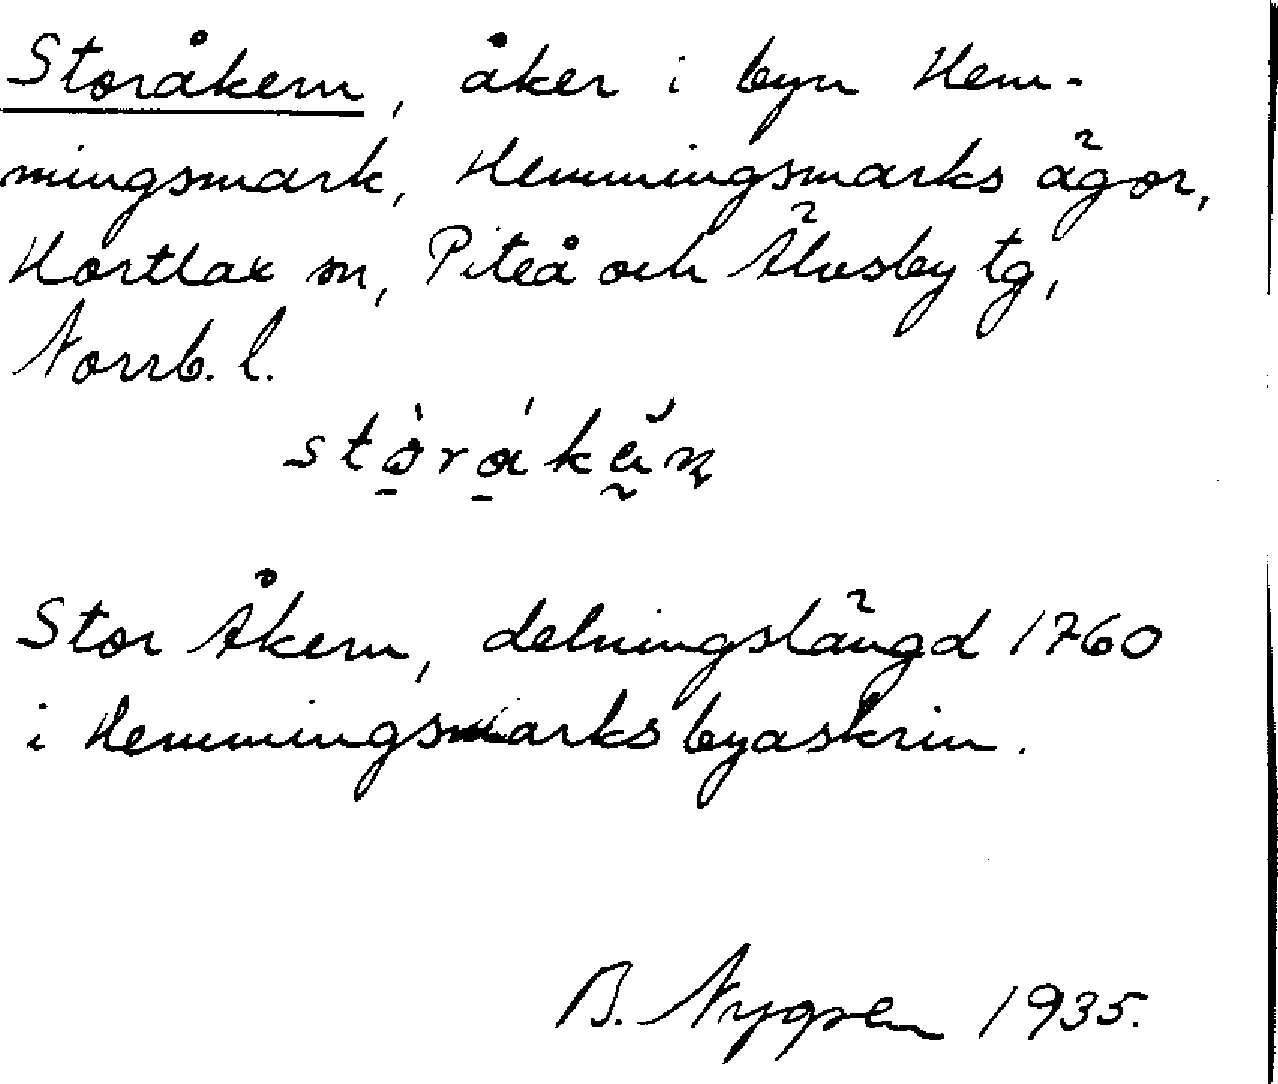 Storåkern, åker i byn Hem-
mingsmark, Hemmingsmarks ägor,
Hortlax sn, Piteå och Älvsby tg,
Norrb. l.
Stor Åkern, delningslängd 1760
i Hemmingsmarks byaskrin.
B. Nygren 1935.